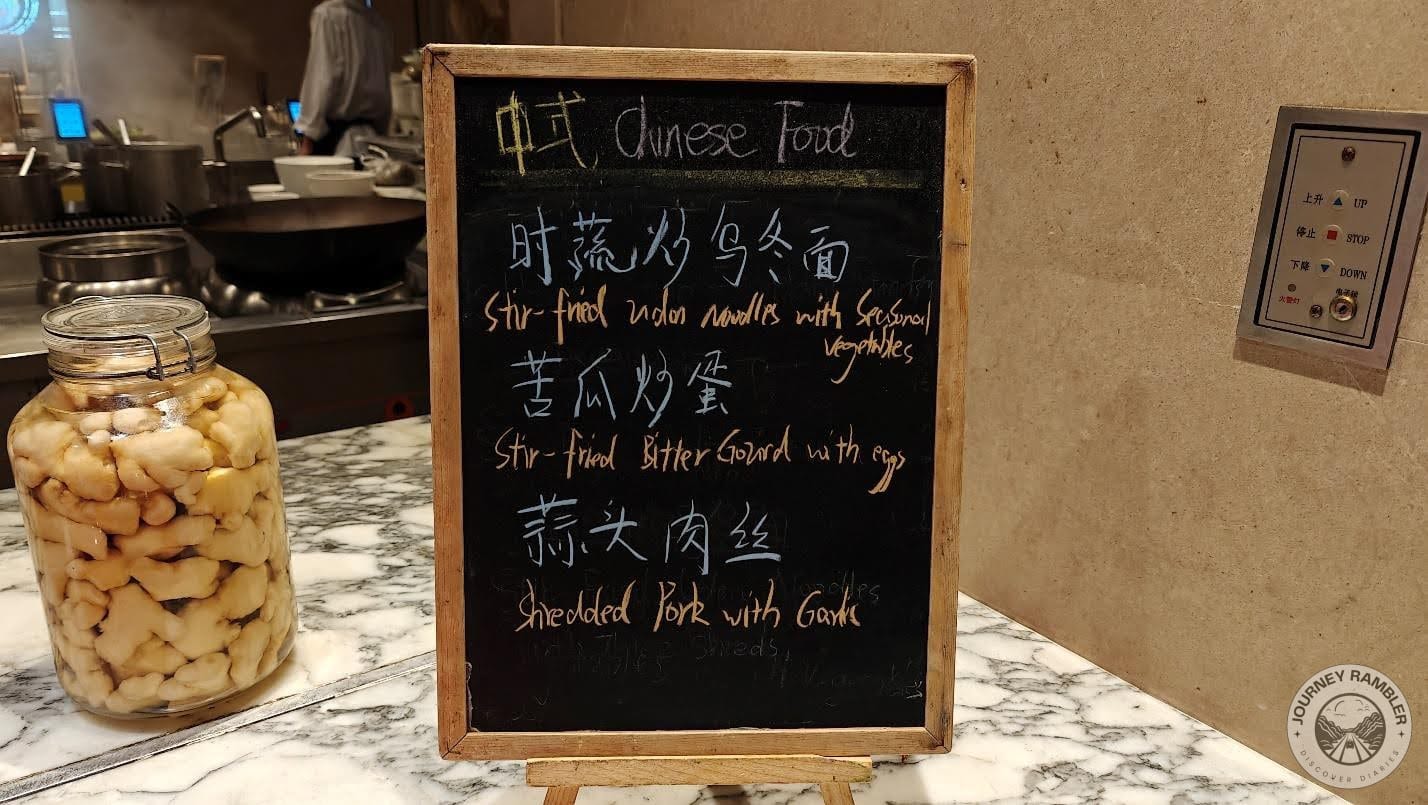 中式 Chinese Food
时蔬炒乌冬面
Stir-fried Udon Noodles with Seasonal
vegetables
苦瓜炒蛋
Stir-fried Bitter Gourd with eggs
蒜头肉丝
Shredded Pork with Garlic
上升 UP
停止 STOP
下降 DOWN
火警灯 电子锁
JOURNEY RAMBLER
DISCOVER DIARIES